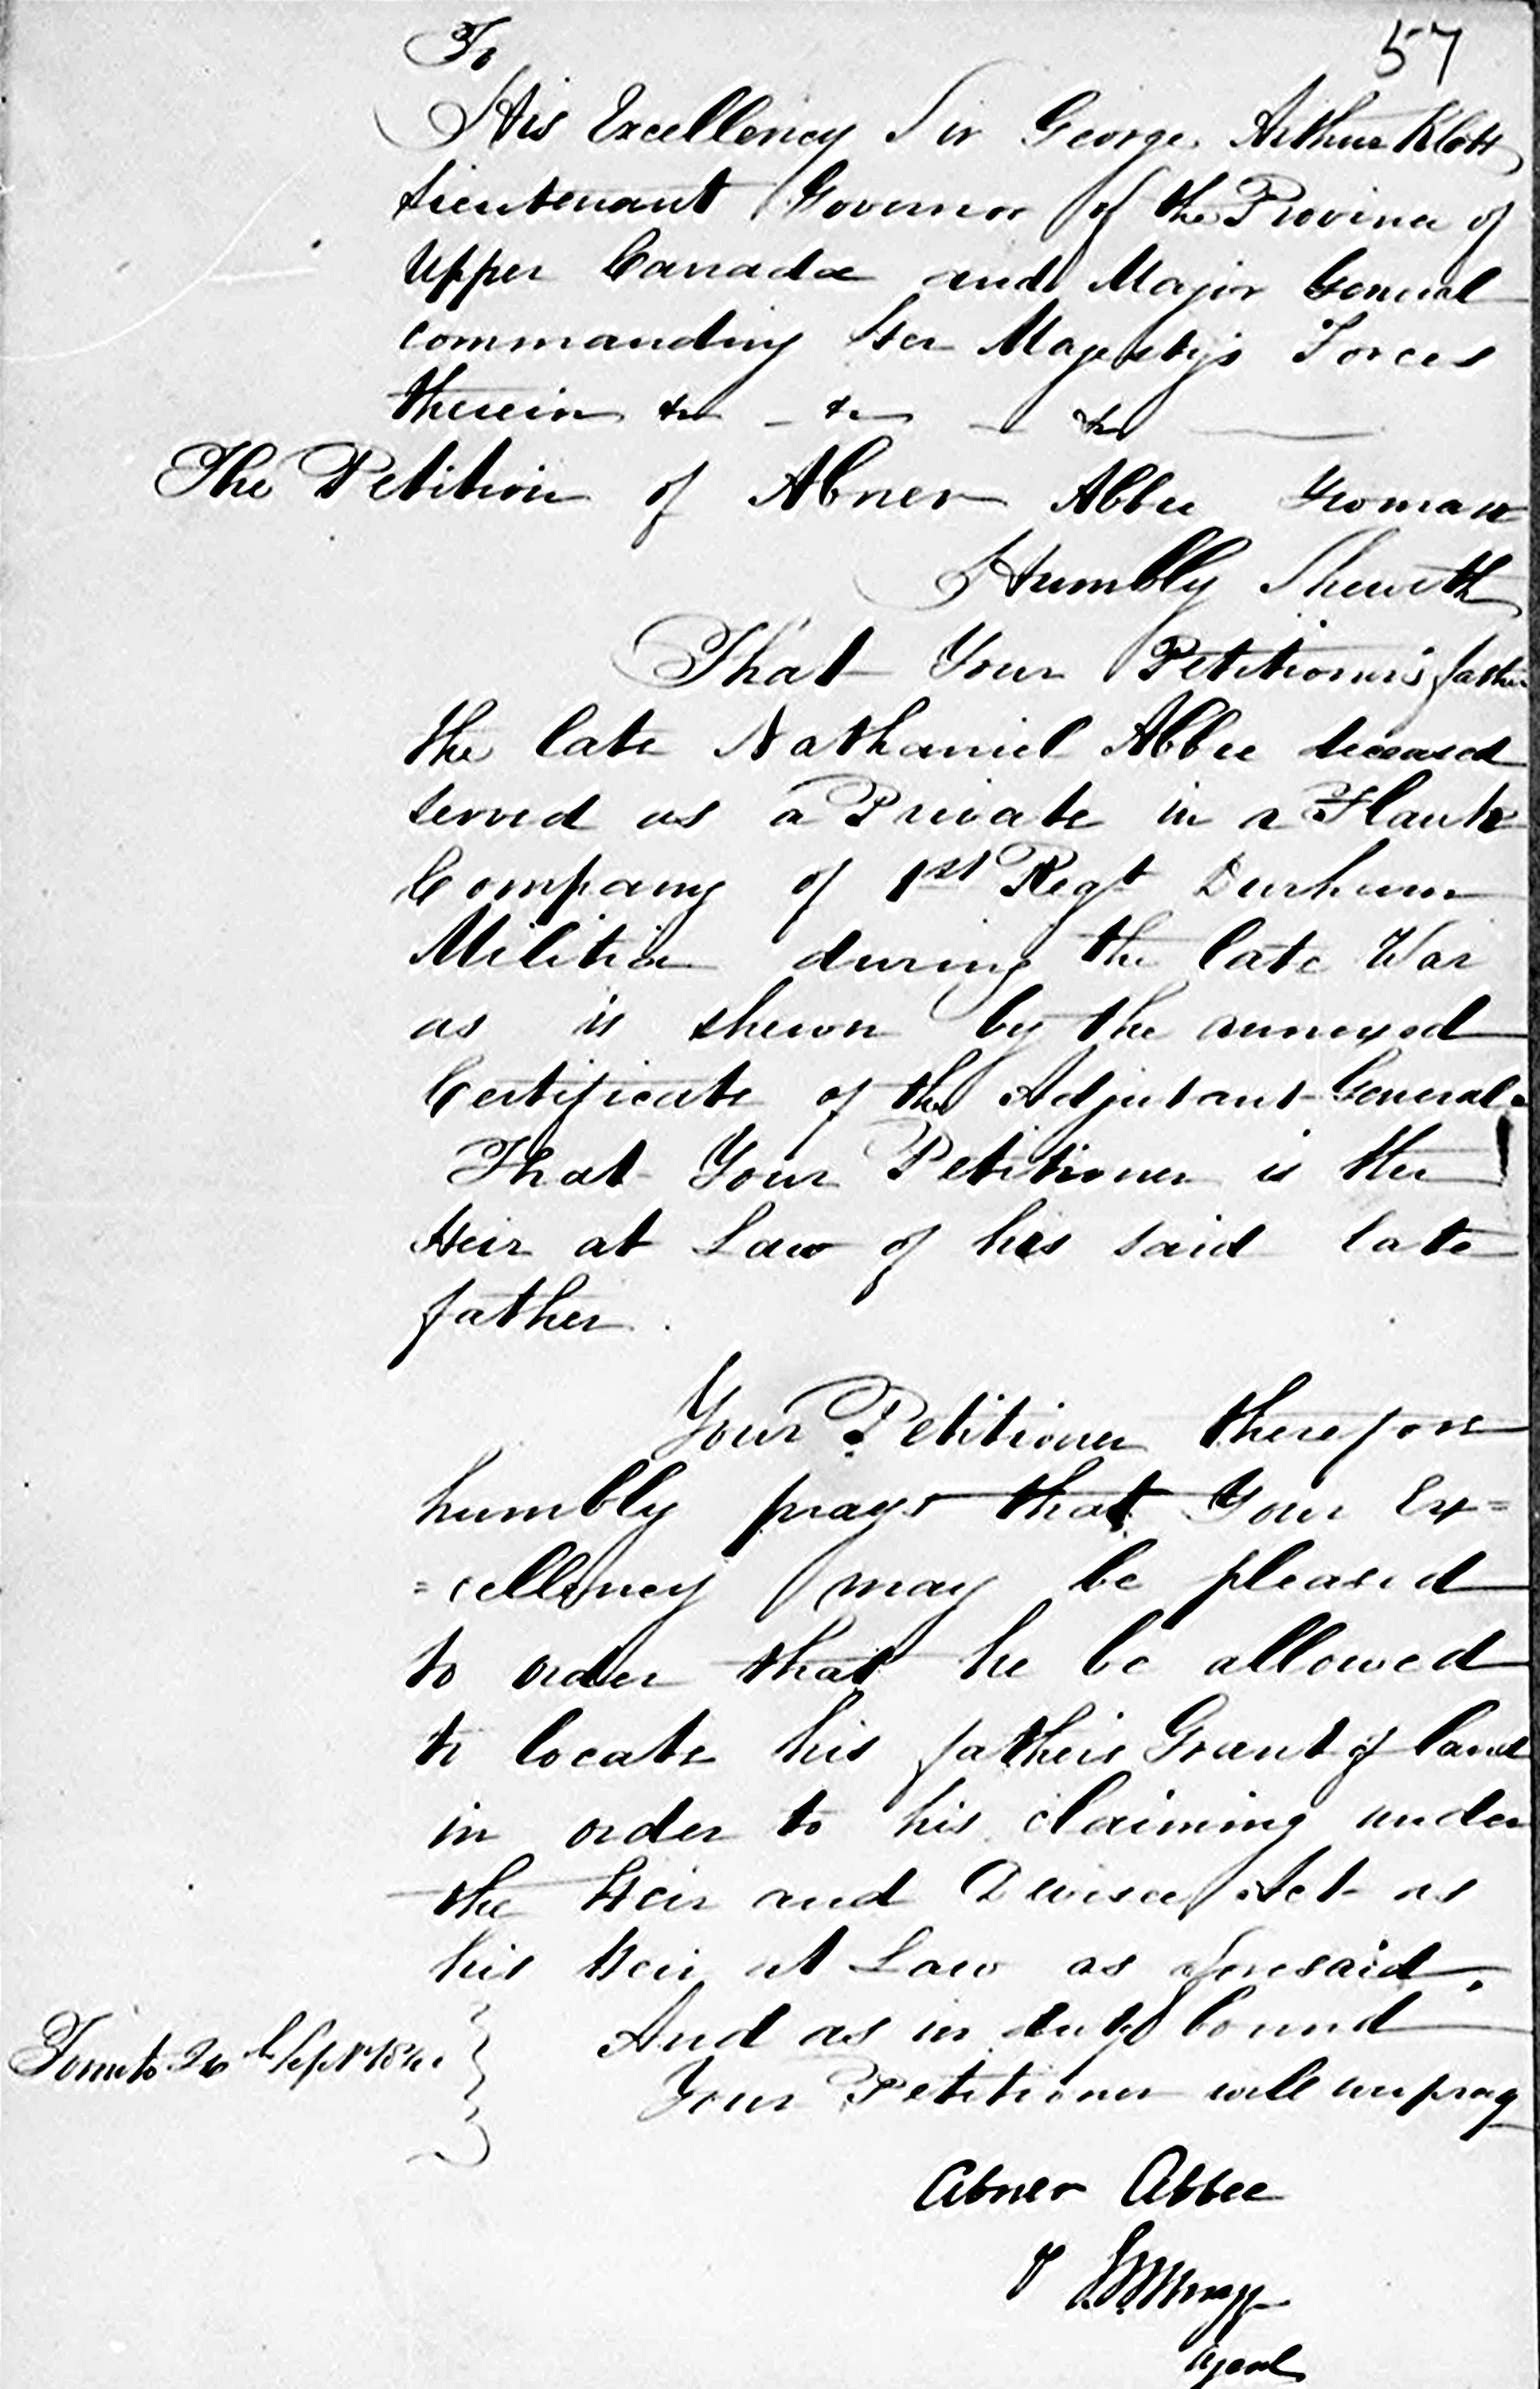 57
To
His Excellency Sir George Arthur K
Lieutenant Governor of the Province of
Upper Canada and Major General
commanding Her Majesty's Forces
therein &c - &c - &c
The Petition of Abner Abbee Yeoman
Humbly Sheweth
That Your Petitioner's father
the late Nathaniel Abbee deceased
served as a Private in a Flank
Company of 1st Regt Durham
Militia during the late War
as is shewn by the annexed
Certificate of the Adjutant General.
That Your Petitioner is the
Heir at Law of his said late
father.
Your Petitioner therefore
humbly prays that Your Ex=
=cellency may be pleased
to order that he be allowed
to locate his father's Grant of land
in order to his claiming under
the Heir and Devisee Act as
his Heir at Law as aforesaid.
And as in duty bound
Toronto 26th Sept
Your Petitioner will ever pray
Abner Abbee
Agent